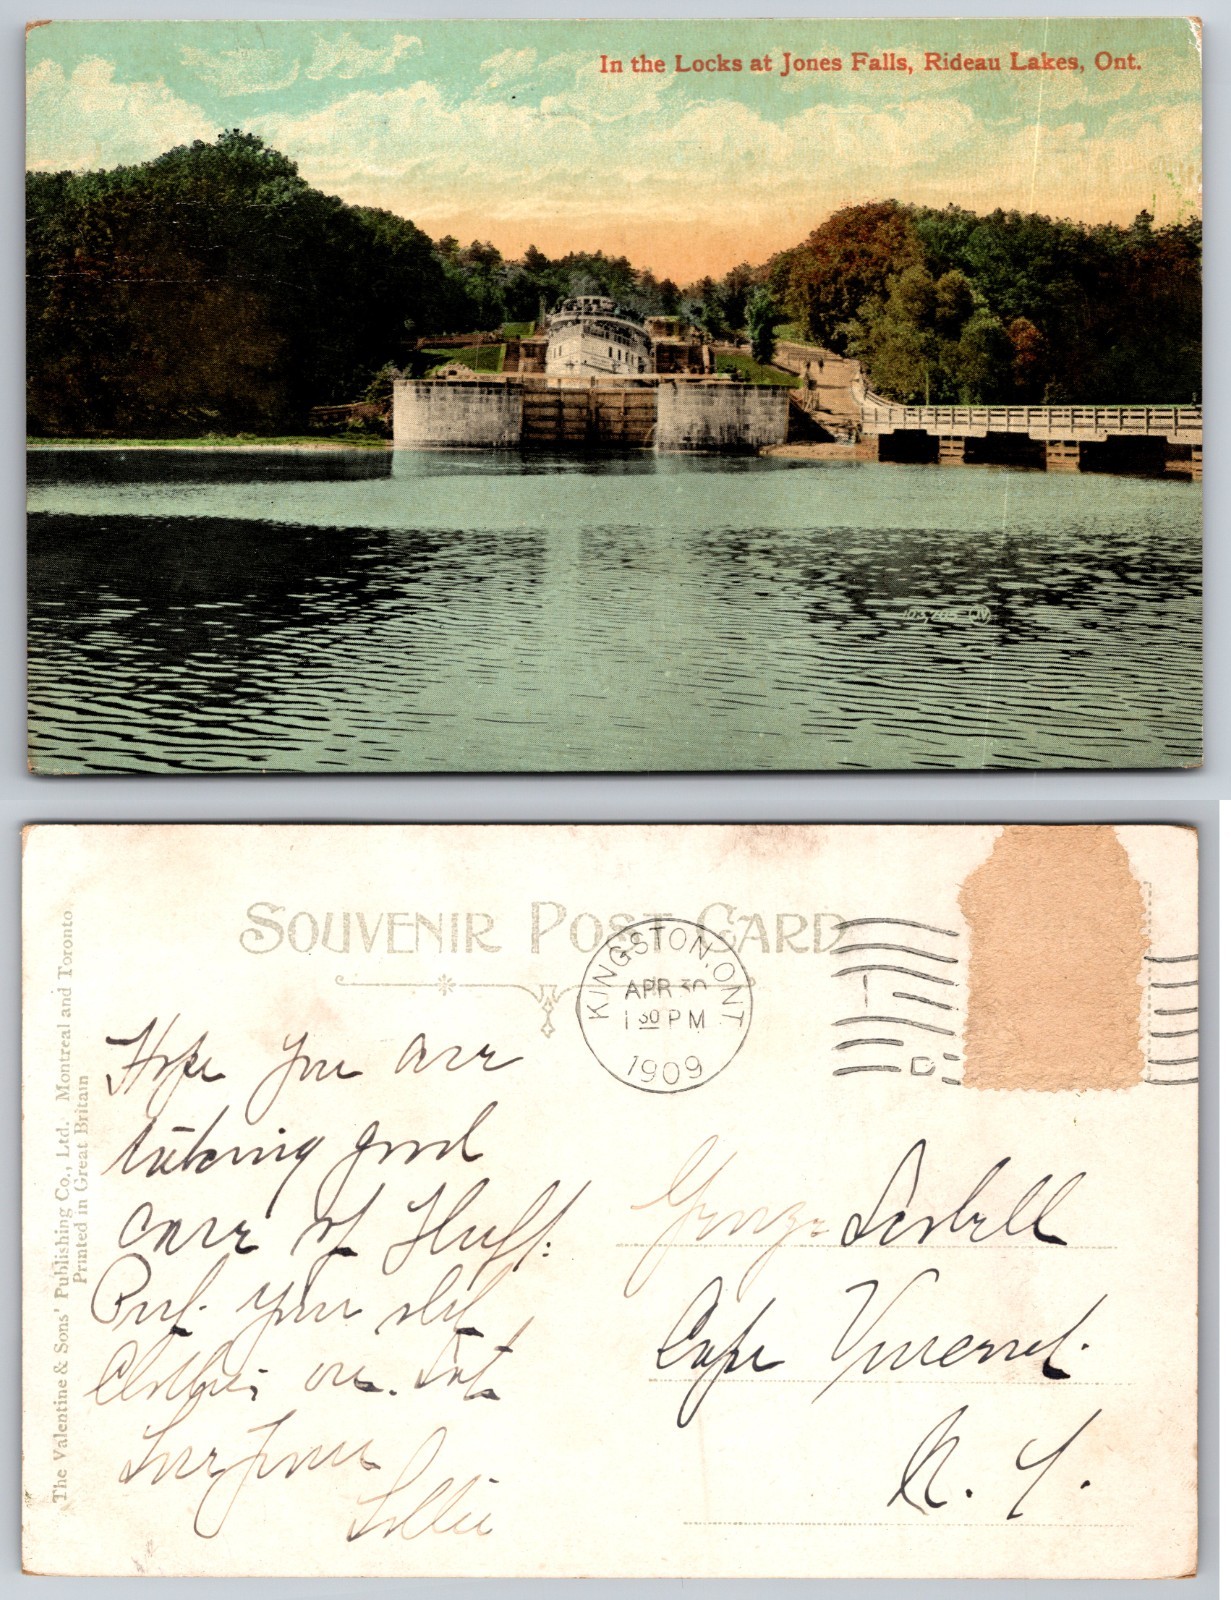 In the Locks at Jones Falls, Rideau Lakes, Ont.
103,765 JV
SOUVENIR POST CARD
The Valentine & Sons' Publishing Co., Ltd. Montreal and Toronto
Printed in Great Britain
KINGSTON, ONT
APR 30
1 30 PM
1909
Hope you are
taking good
care of Fluff.
Put your old
Clothes on. Sat
Love from
Lollie
George
Cape Vincent.
N. Y.